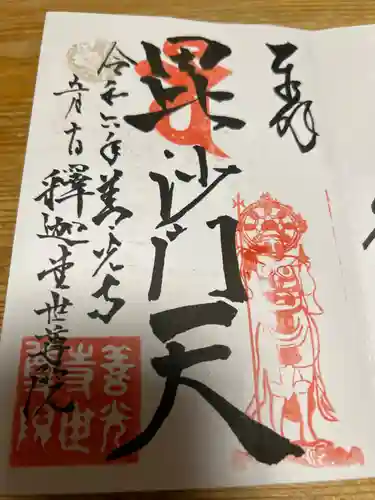 奉拝
毘沙門天
善光寺
釋迦堂世尊院
令和六年
五月十日
善光
寺世
尊院